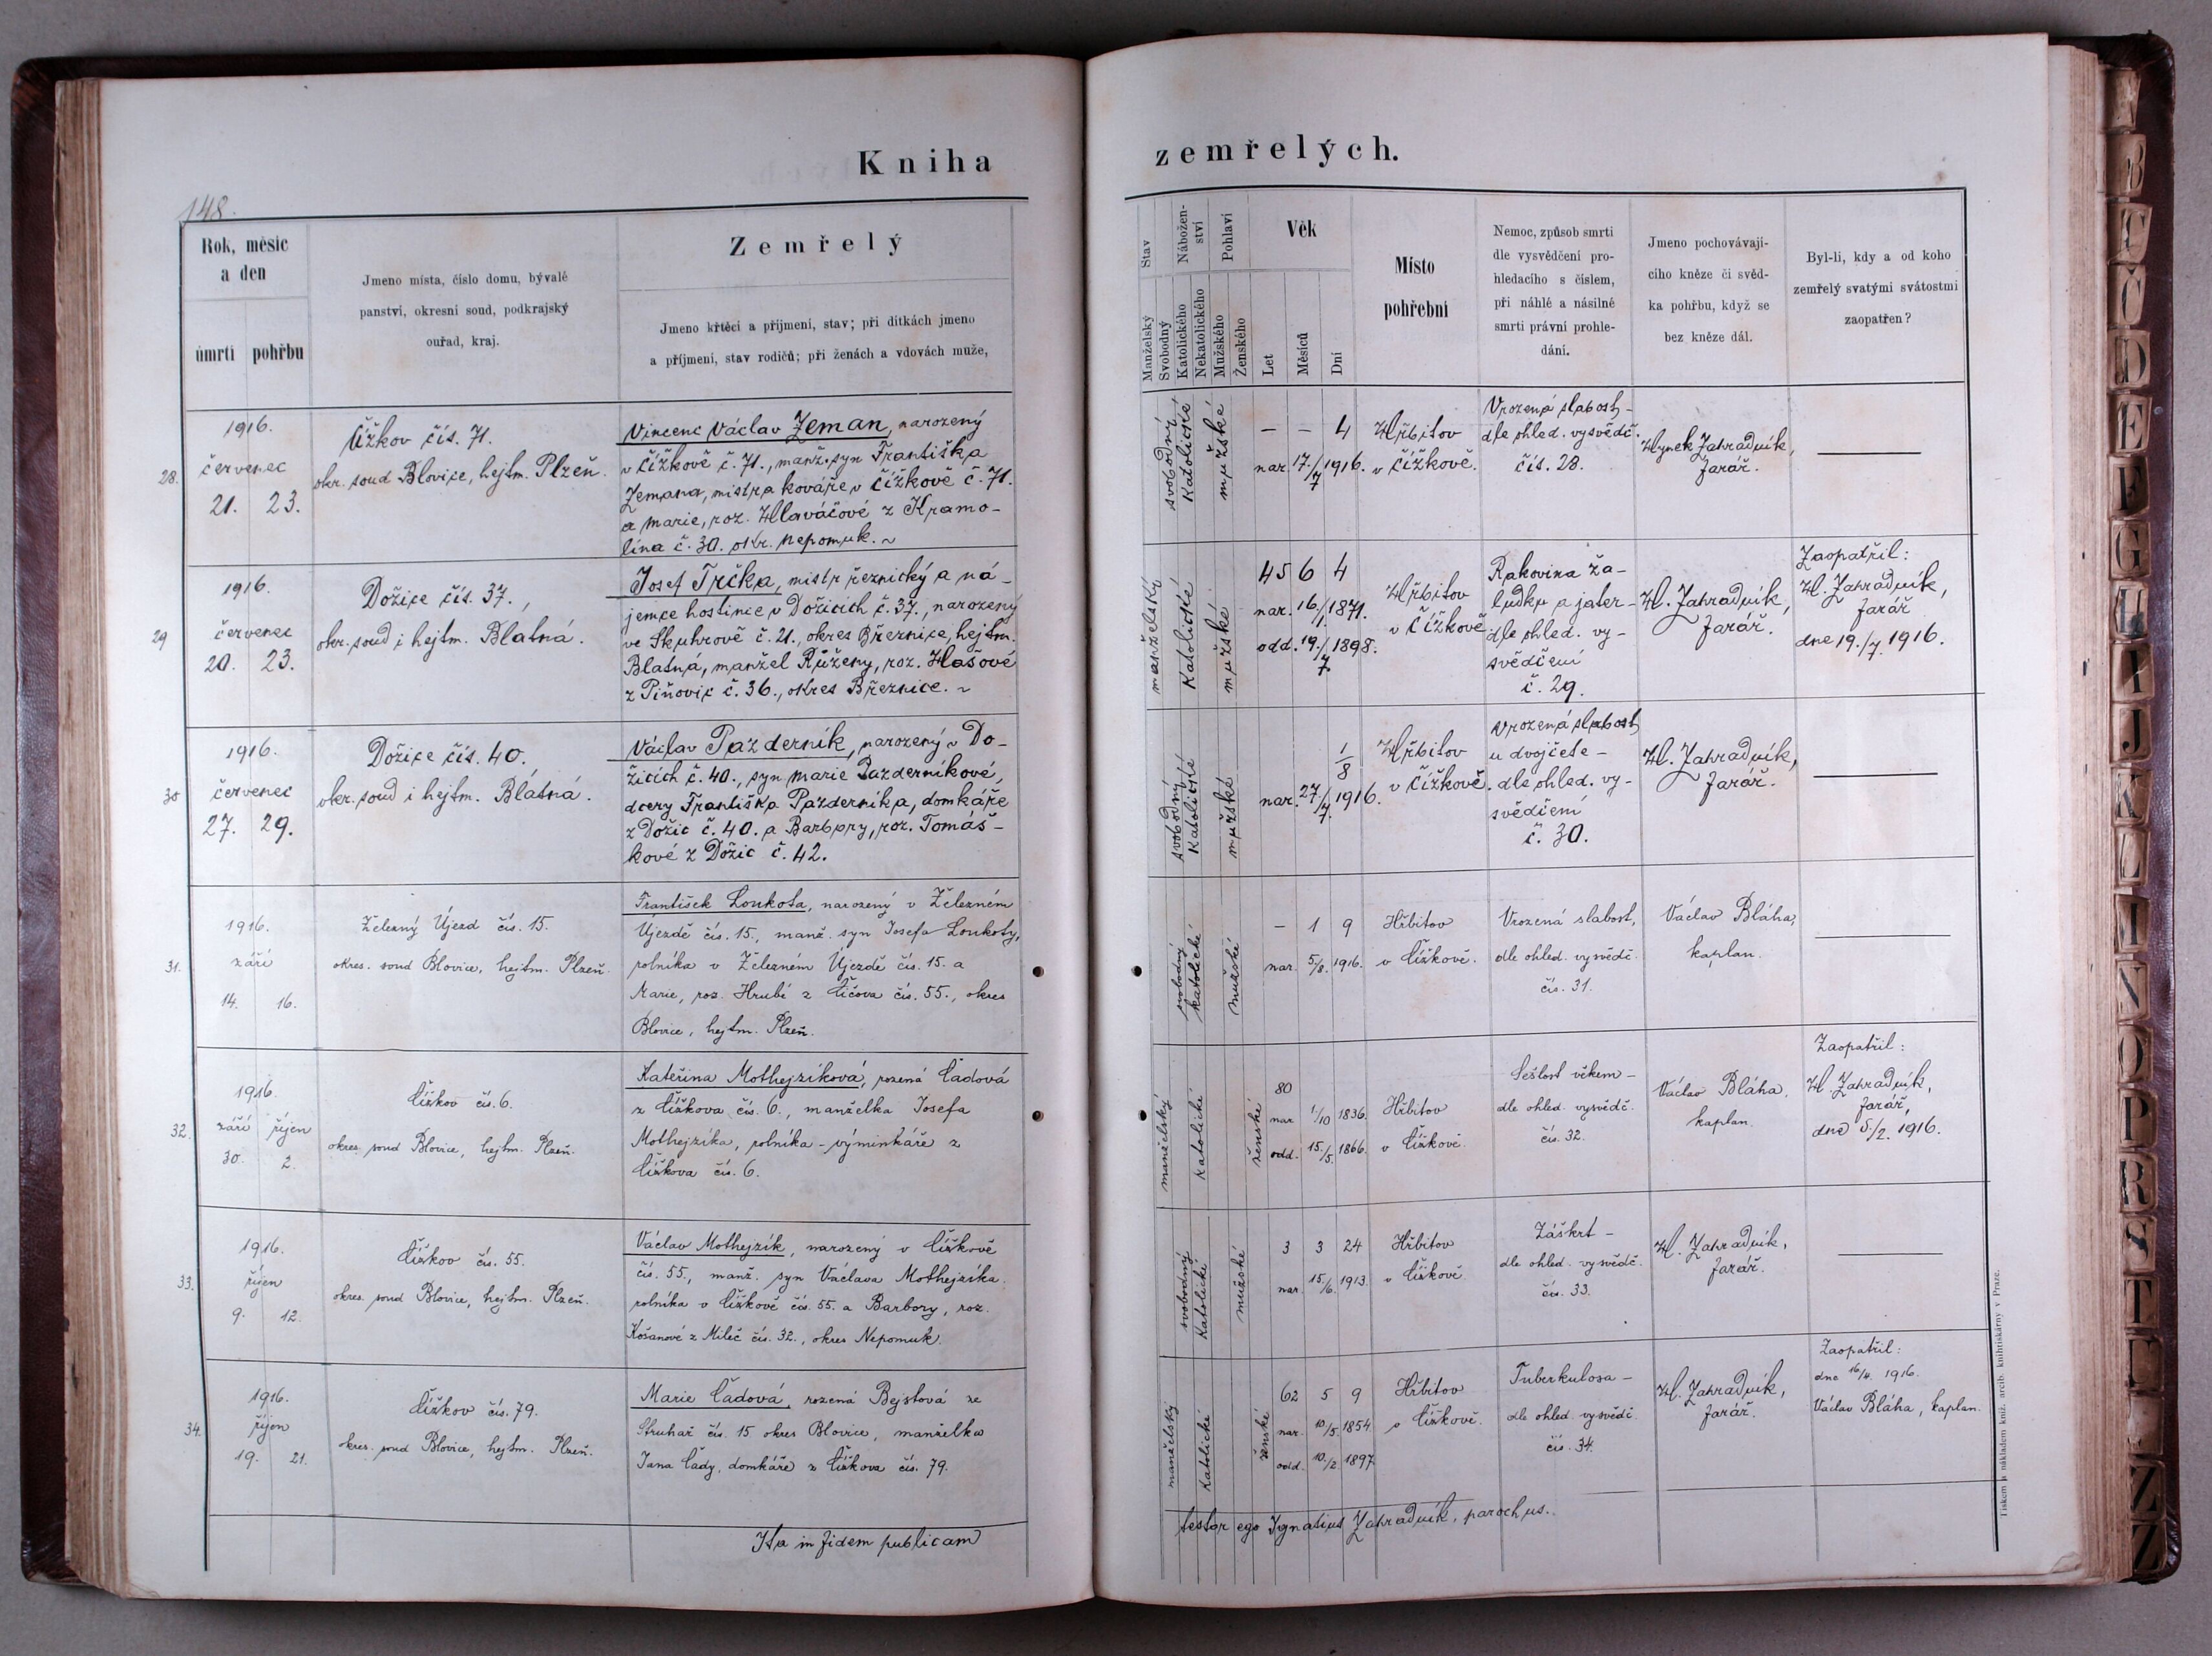 Kniha
zemřelých.
148.
Rok, měsíc
a den
úmrtí pohřbu
Jmeno místa, číslo domu, bývalé
panství, okresní soud, podkrajský
ouřad, kraj.
Zemřelý
Jmeno křtěcí a příjmení, stav; při dítkách jmeno
a příjmení, stav rodičů; při ženách a vdovách muže,
Stav
Manželský
Svobodný
Nábožen-
ství
Katolického
Nekatolického
Pohlaví
Mužského
Ženského
Věk
Let
Měsíců
Dní
Místo
pohřební
Nemoc, způsob smrti
dle vysvědčení pro-
hledacího s číslem,
při náhlé a násilné
smrti právní prohle-
dání.
Jmeno pochovávají-
cího kněze či svěd-
ka pohřbu, když se
bez kněze dál.
Byl-li, kdy a od koho
zemřelý svatými svátostmi
zaopatřen?
28.
1916.
červenec
21. 23.
Čížkov čís. 71.
okr. soud Blovice, hejtm. Plzeň.
Vincenc Václav Zeman, narozený
v Čížkově č. 71., manž. syn Františka
Zemana, mistra kováře v Čížkově č. 71.
a Marie, roz. Hlaváčové z Kramo-
lína č. 30. okr. Nepomuk. ~
svobodný
katolické
mužské
— — 4
nar. 17./7 1916.
Hřbitov
v Čížkově.
Vrozená slabost -
dle ohled. vysvědč.
čís. 28.
Hynek Zahradník,
farář.
29
1916.
červenec
20. 23.
Dožice čís. 37.,
okr. soud i hejtm. Blatná.
Josef Trčka, mistr řeznický a ná-
jemce hostince v Dožicích č. 37., narozený
ve Skuhrově č. 21., okres Březnice, hejtm.
Blatná, manžel Růženy, roz. Hlašové
z Piňovic č. 36., okres Březnice. ~
manželský
katolické
mužské
45 6 4
nar. 16./1. 1871.
odd. 19./7. 1898.
Hřbitov
v Čížkově
Rakovina ža-
ludku a jater -
dle ohled. vy-
svědčení
č. 29.
H. Zahradník,
farář.
Zaopatřil:
H. Zahradník,
farář
dne 19./7. 1916.
30
1916.
červenec
27. 29.
Dožice čís. 40.,
okr. soud i hejtm. Blatná.
Václav Pazderník, narozený v Do-
žicích č. 40., syn Marie Pazderníkové,
dcery Františka Pazderníka, domkáře
z Dožic č. 40. a Barbory, roz. Tomáš-
kové z Dožic č. 42.
svobodný
katolické
mužské
1/8
nar. 27./7. 1916.
Hřbitov
v Čížkově.
Vrozená slabost
u dvojčete -
dle ohled. vy-
svědčení
č. 30.
H. Zahradník,
farář.
31.
1916.
září
14. 16.
Železný Újezd čís. 15.
okres. soud Blovice, hejtm. Plzeň.
František Loukota, narozený v Železném
Újezdě čís. 15., manž. syn Josefa Loukoty,
rolníka v Železném Újezdě čís. 15. a
Marie, roz. Hrubé z Číčova čís. 55., okres
Blovice, hejtm. Plzeň.
svobodný
katolické
mužské
— 1 9
nar. 5/8. 1916.
Hřbitov
v Čížkově.
Vrozená slabost,
dle ohled. vysvědč.
čís. 31.
Václav Bláha,
kaplan.
32.
1916.
září říjen
30. 2.
Čížkov čís. 6.
okres. soud Blovice, hejtm. Plzeň.
Kateřina Mothejzíková, rozená Čadová
z Čížkova čís. 6., manželka Josefa
Mothejzíka, rolníka - výminkáře z
Čížkova čís. 6.
manželský
katolické
ženské
80
nar. 1/10 1836.
odd. 15./5. 1866.
Hřbitov
v Čížkově.
Sešlost věkem -
dle ohled. vysvědč.
čís. 32.
Václav Bláha,
kaplan.
Zaopatřil:
H. Zahradník,
farář,
dne 5/2. 1916.
33.
1916.
říjen
9. 12.
Čížkov čís. 55.
okres. soud Blovice, hejtm. Plzeň.
Václav Mothejzík, narozený v Čížkově
čís. 55., manž. syn Václava Mothejzíka
rolníka v Čížkově čís. 55. a Barbory, roz.
Košanové z Mileč čís. 32., okres Nepomuk.
svobodný
katolické
mužské
3 3 24
nar. 15./6. 1913.
Hřbitov
v Čížkově.
Záškrt -
dle ohled. vysvědč.
čís. 33.
H. Zahradník,
farář.
34.
1916.
říjen
19. 21.
Čížkov čís. 79.
okres. soud Blovice, hejtm. Plzeň.
Marie Čadová, rozená Bejstová ze
Struhař čís. 15 okres Blovice, manželka
Jana Čady, domkáře z Čížkova čís. 79.
manželský
katolické
ženské
62 5 9
nar. 10/5. 1854
odd. 10./2. 1897.
Hřbitov
v Čížkově.
Tuberkulosa -
dle ohled. vysvědč.
čís. 34.
H. Zahradník,
farář.
Zaopatřil:
dne 16/4. 1916.
Václav Bláha, kaplan.
Ita in fidem publicam
testor ego Ignatius Zahradník, parochus.
Tiskem a nákladem kníž. arcib. knihtiskárny v Praze.
B
C
Č
D
E
F
G
H
I
J
K
L
M
N
O
P
R
S
T
Z
Ž